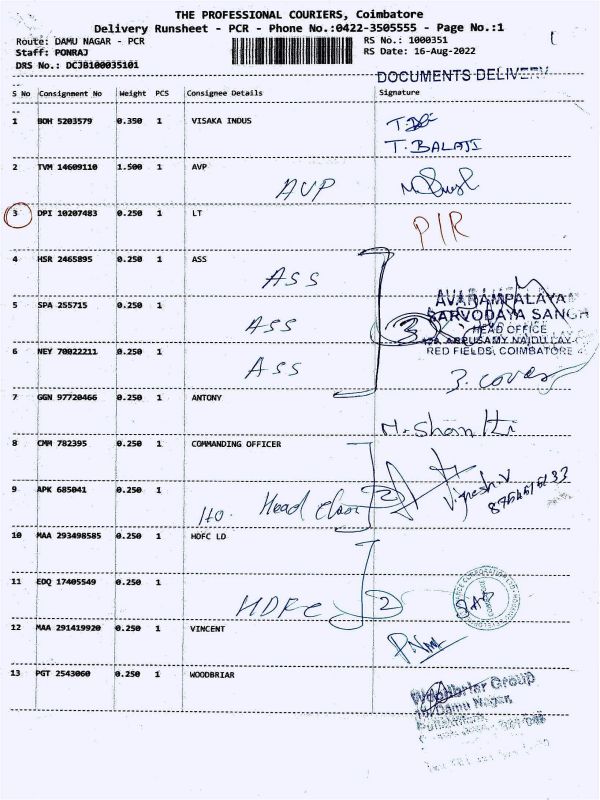 THE PROFESSIONAL COURIERS, Coimbatore
Delivery Runsheet - PCR - Phone No.:0422-3505555 - Page No.:1
Route: DAMU NAGAR - PCR RS No.: 1000351
Staff: PONRAJ RS Date: 16-Aug-2022
DRS No.: DCJB100035101
DOCUMENTS DELIVERY
S No Consignment No Weight PCS Consignee Details Signature
1 BOH 5203579 0.350 1 VISAKA INDUS
T. BALAJI
2 TVM 14609110 1.500 1 AVP
AVP
3 DPI 10207483 0.250 1 LT
PIR
4 HSR 2465895 0.250 1 ASS
ASS
AVARAMPALAYAM
5 SPA 255715 0.250 1
SARVODAYA SANGH
ASS 3 HEAD OFFICE
APPUSAMY NAIDU LAY
6 NEY 70822211 0.250 1
RED FIELDS, COIMBATORE
ASS
3. cover
7 GGN 97720466 0.250 1 ANTONY
M. Shanthi
8 CMM 782395 0.250 1 COMMANDING OFFICER
9 APK 685041 0.250 1
Head 2 Vignesh.V
10 MAA 293498585 0.250 1 HDFC LD
11 EDQ 17405549 0.250 1
HDFC 2
12 MAA 291419920 0.250 1 VINCENT
13 PGT 2543060 0.250 1 WOODBRIAR
Woodbriar Group
Damu Nagar,